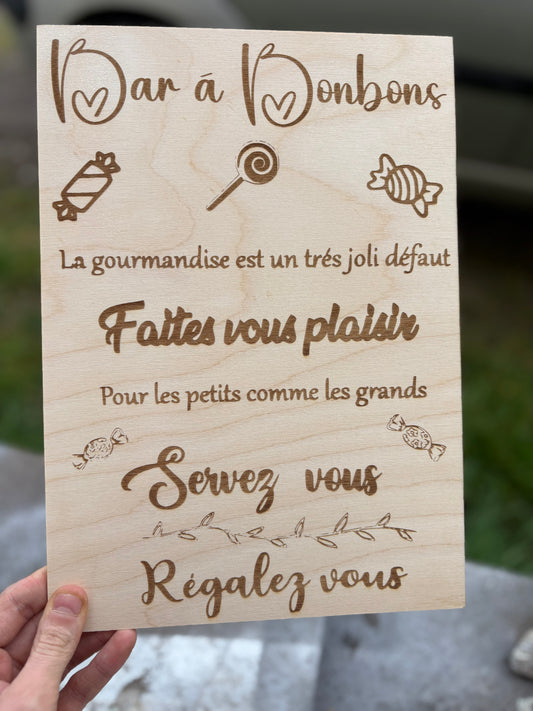 Bar á Bonbons
La gourmandise est un trés joli défaut
Faites vous plaisir
Pour les petits comme les grands
Servez vous
Régalez vous